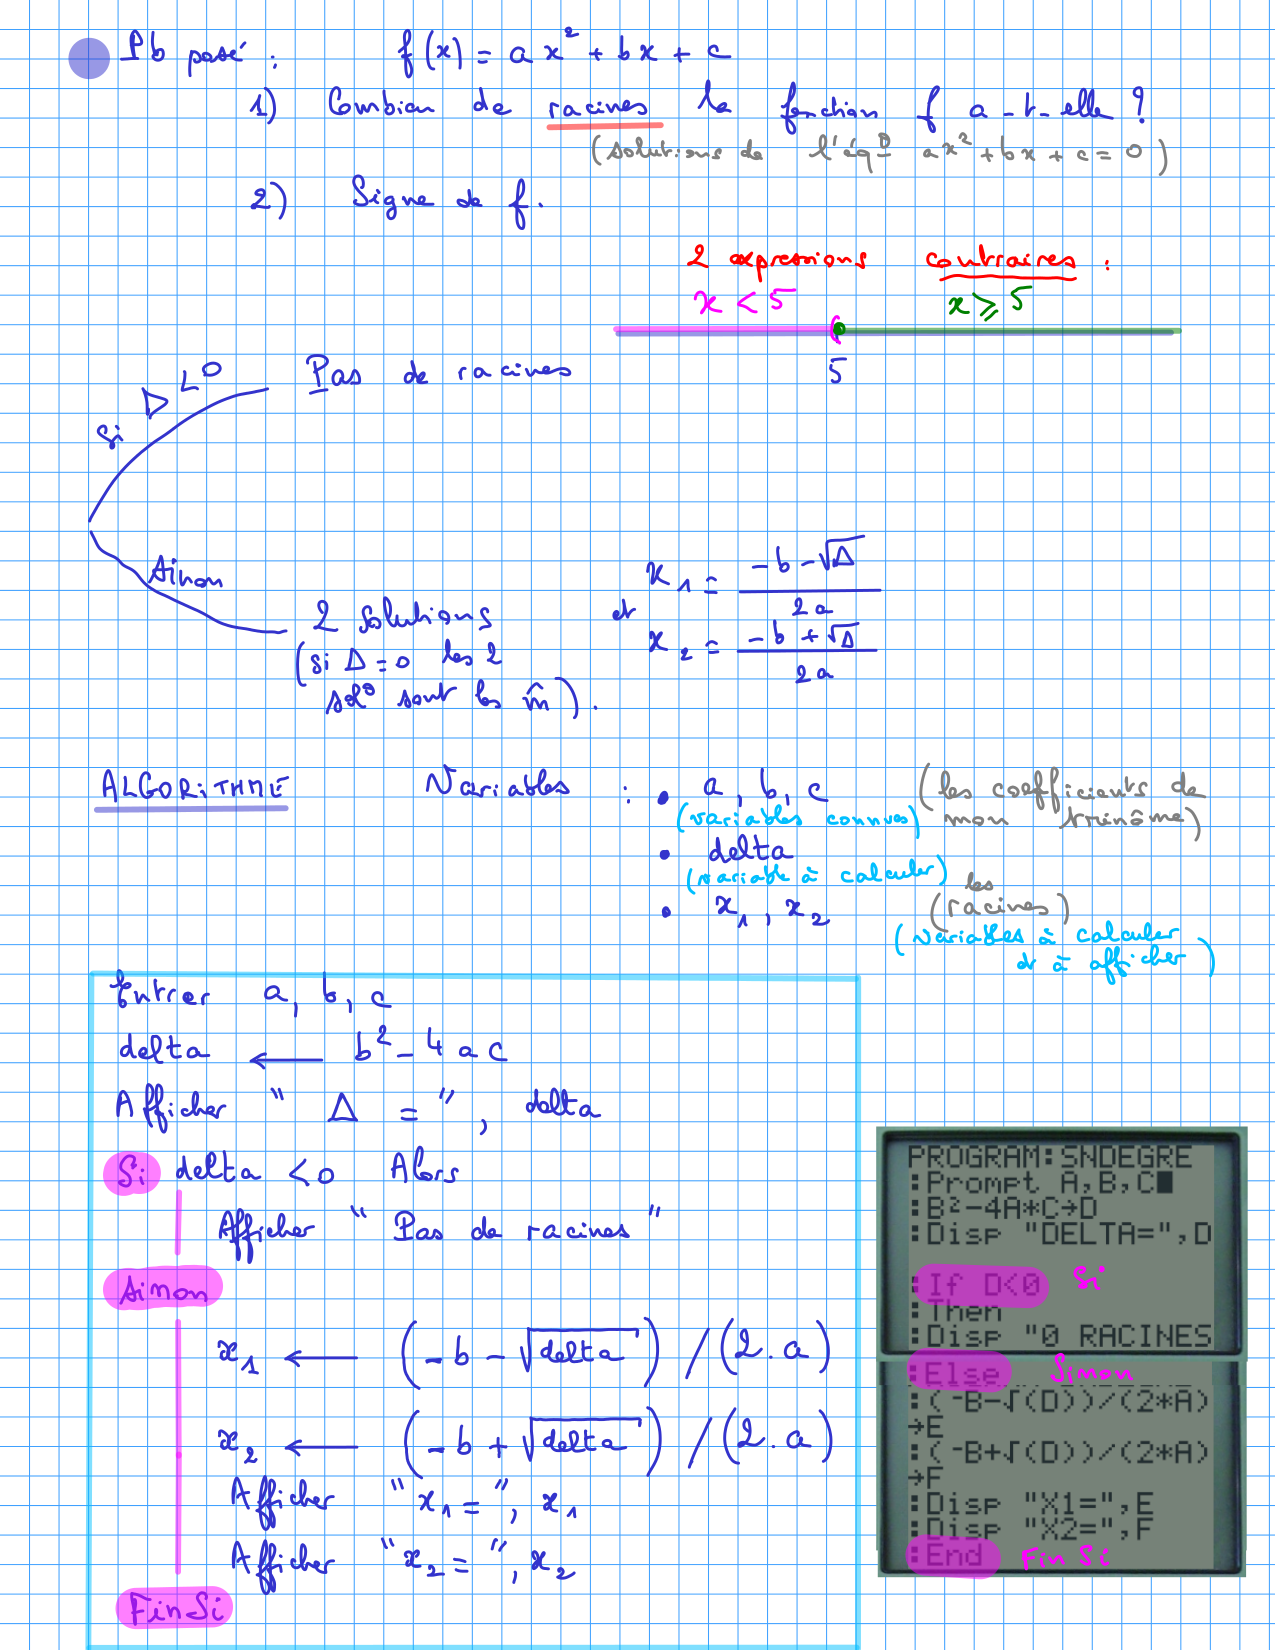 Pb posé : f(x) = ax² + bx + c
1) Combien de racines la fonction f a-t-elle ?
(solutions de l'éqº ax² + bx + c = 0)
2) Signe de f.
2 expressions contraires :
x < 5 x ⩾ 5
5
Si Δ < 0 Pas de racines
Sinon
2 solutions
(si Δ = 0 les 2
solº sont les m̂).
x₁ = (-b - √Δ) / 2a
et
x₂ = (-b + √Δ) / 2a
ALGORITHME Variables : • a, b, c (les coefficients de
(variables connues) mon trinôme)
• delta
(variable à calculer)
• x₁, x₂ (les racines)
(variables à calculer
et à afficher)
Entrer a, b, c
delta ← b² - 4ac
Afficher " Δ = ", delta
Si delta < 0 Alors
Afficher " Pas de racines "
Sinon
x₁ ← (-b - √delta) / (2.a)
x₂ ← (-b + √delta) / (2.a)
Afficher " x₁ = ", x₁
Afficher " x₂ = ", x₂
FinSi
PROGRAM:SNDEGRE
:Prompt A,B,C
:B²-4A*C→D
:Disp "DELTA=",D
:If D<0 Si
:Then
:Disp "0 RACINES
:Else Sinon
:(-B-√(D))/(2*A)
→E
:(-B+√(D))/(2*A)
→F
:Disp "X1=",E
:Disp "X2=",F
:End Fin Si